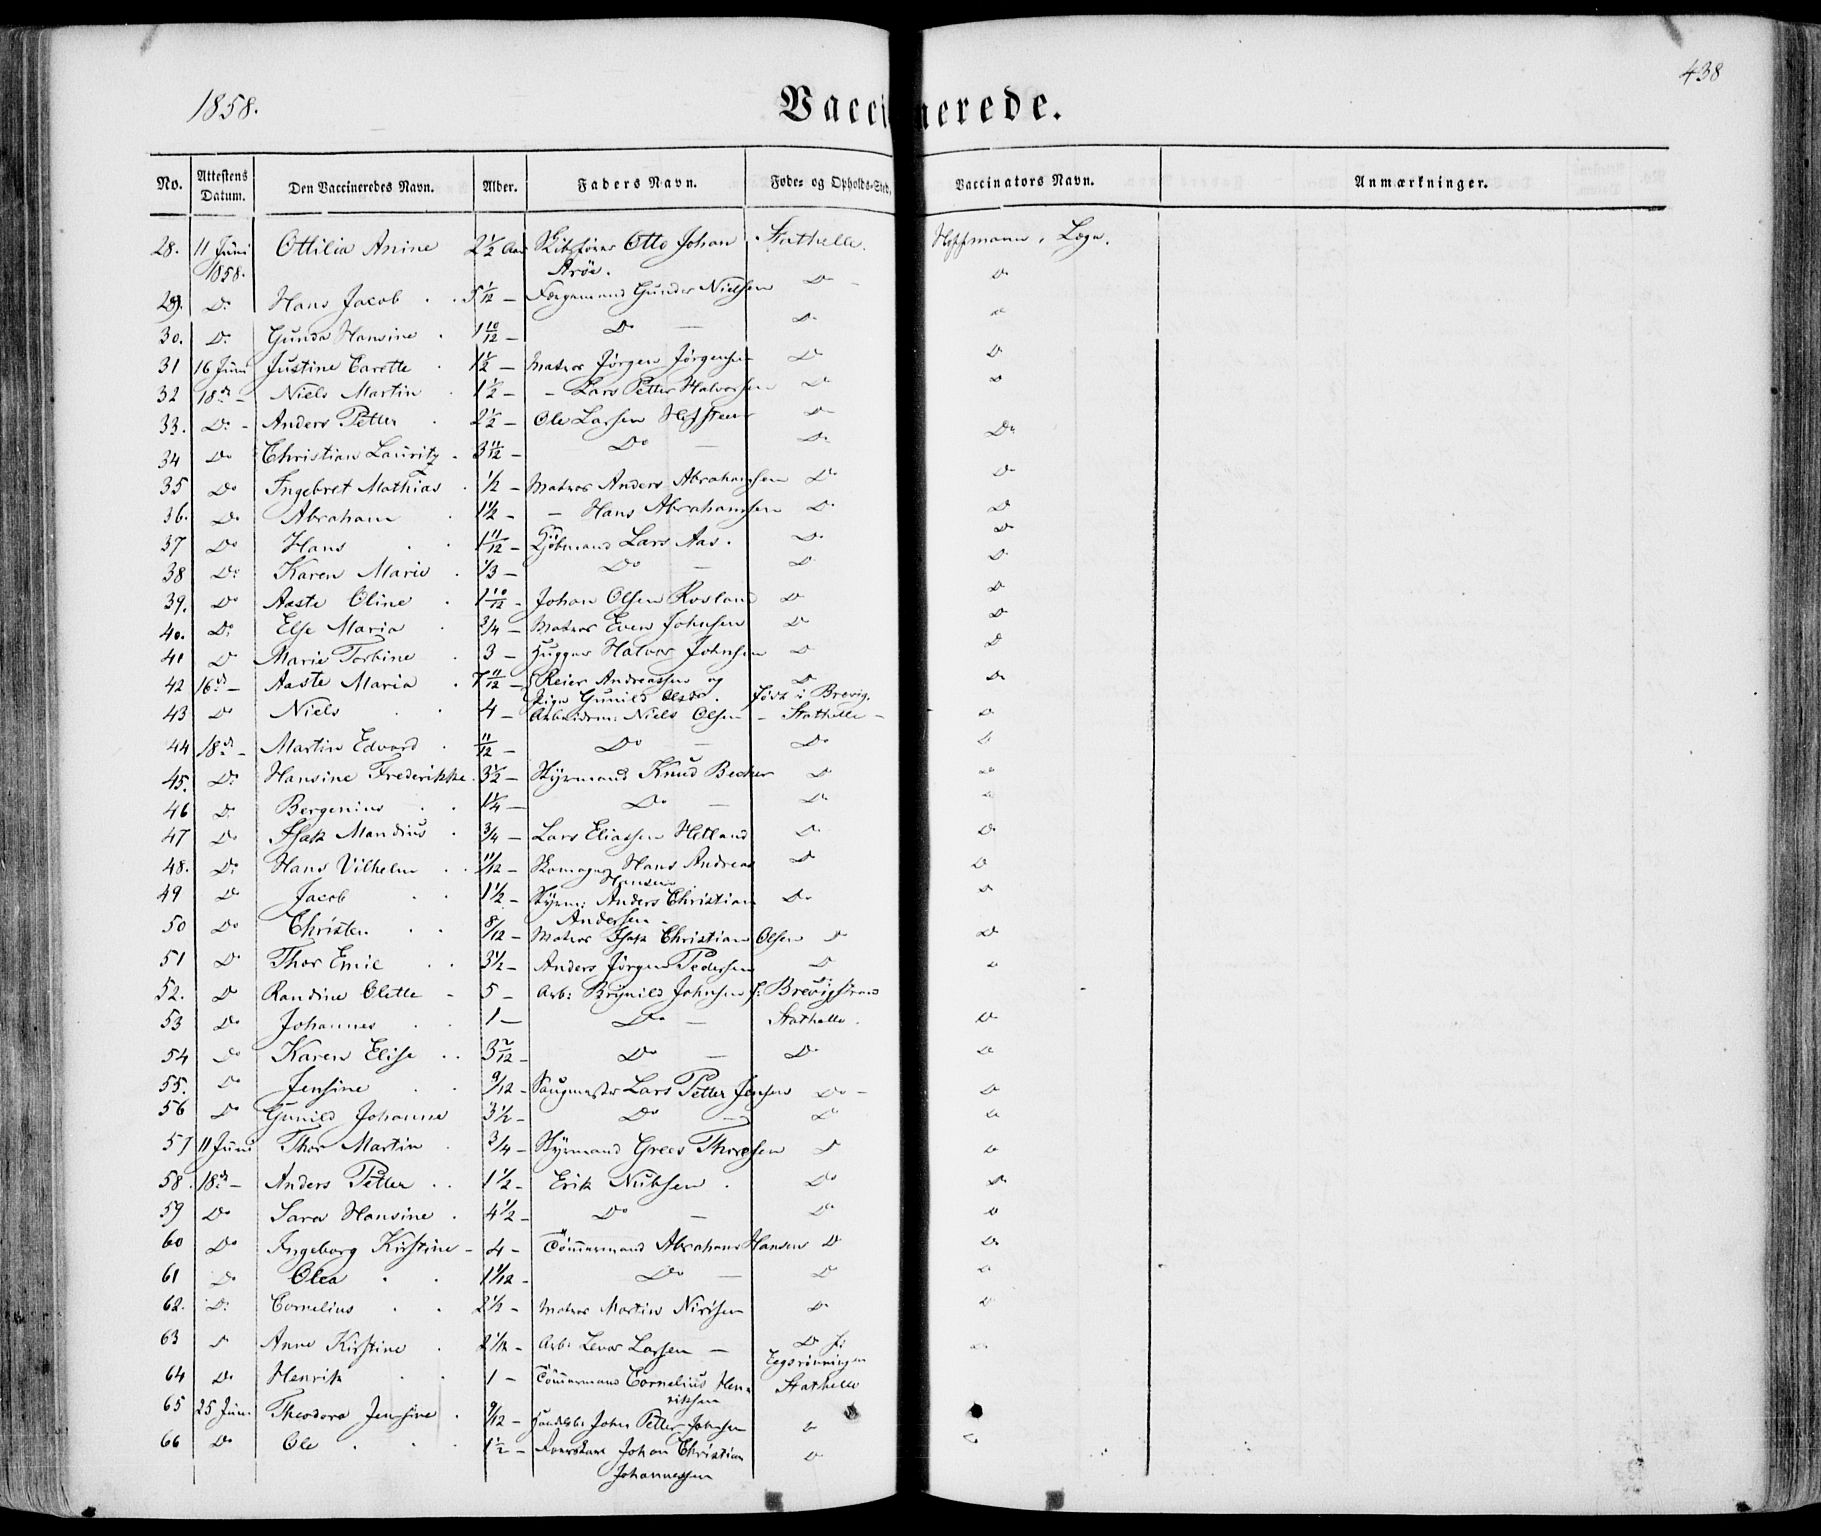 438
1858.
Vaccinerede.
No. Attestens Datum. Den Vaccineredes Navn. Alder. Faders Navn. Føde- og Opholds-Sted. Vaccinators Navn. Anmærkninger.
28. 11 Juni 1858. Ottilia Anine 2 1/2 Aar Skibsfører Otto Johan Aröe. Stathelle. Hoffmann, Læge.
29. Do Hans Jacob 5 1/12 – Færgemand Gunder Nielsen Do Do
30. Do Gunda Hansine 1 10/12 – Do Do Do
31 16 Juni Justine Carette 1 1/2 – Matros Jørgen Jørgensen Do Do
32 18de – Niels Martin 1 1/2 – – Lars Petter Halvorsen Do Do
33. Do – Anders Petter 2 1/2 – Ole Larsen Do
34 Do Christian Lauritz 3 11/12 – Do Do Do
35 Do Ingebret Mathias 1/2 – Matros Anders Abrahamsen Do Do
36. Do Abraham 1 1/2 – – Hans Abrahamsen Do Do
37 Do Hans 1 11/12 – Kjöbmand Lars Aas. Do Do
38 Do Karen Marie 1/3 – Do Do Do
39. Do Aaste Oline 1 10/12 – Johan Olsen Rosland Do Do
40. Do Else Maria 3/4 – Matros Even Johnsen Do Do
41 Do Marie Torbine 3 – Hugger Halvor Johnsen Do Do
42 16de – Aaste Maria 7 11/12 – Reier Andreassen og Pige Gunild Olsdr. Do født i Brevig. Do
43 Do Niels 4 – Arbeidsm: Niels Olsen – Stathelle – Do
44 18de – Martin Edvard 11/12 – Do Do Do
45. Do Hansine Frederikke 3 1/2 – Styrmand Knud Becker Do Do
46 Do Bergenius 1 1/4 – Do Do Do
47 Do Isak Mandius 3/4 – Lars Eliassen Hetland Do Do
48. Do Hans Vilhelm 11/12 – Skomager Hans Andreas Hansen Do Do
49 Do Jacob 1 1/2 – Styrm: Anders Christian Andersen – Do Do
50 Do Christen 8/12 – Matros Isak Christian Olsen Do Do
51 Do Thor Emil 3 1/2 – Anders Jörgen Pedersen Do Do
52. Do Randine Olette – 5 – Arb: Brynild Johnsen f: Brevigstrand
53 Do Johannes 1 – Do – Stathelle. Do
54 Do Karen Elise 3 2/12 – Do – Do Do
55. Do Jensine 9/12 – Saugmester Lars Petter Jensen Do – Do
56 Do Gunild Johanne 3 1/2 – Do – Do Do
57 11 Juni Thor Martin 3/4 – Styrmand Grees Thoresen Do Do
58. 18de – Anders Petter 1 1/2 – Erik Nubsen. Do Do
59 Do Sara Hansine 4 1/2 – Do – Do Do
60 Do Ingeborg Kirstine – 4 – Tömmermand Abraham Hansen Do Do
61 Do Olea 1 1/12 – Do – Do Do
62. Do Cornelius 2 1/2 – Matros Martin Do Do
63 Do Anne Kirstine 2 1/12 – Arb: Levor Larsen – Do f: Eegsrönningen Do
64 Do Henrik 1 – Tömmermand Cornelius Henriksen Stathelle
65 25 Juni Theodora Jensine 9/12 – John Petter Johnsen Do
66 Do Ole 1 1/2 – Johan Christian Johannessen Do Do